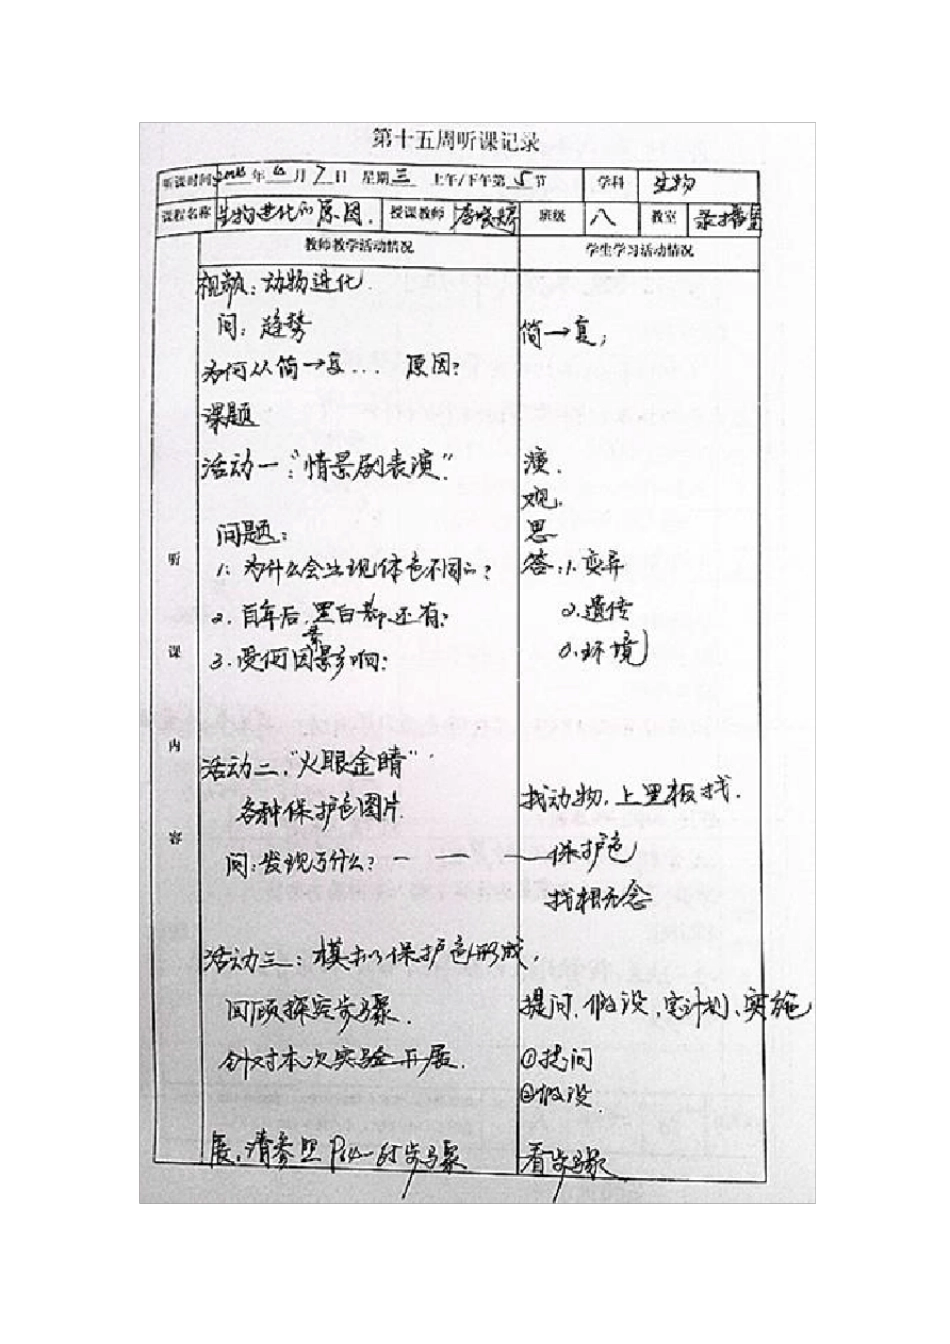 第十五周听课记录
听课时间 年 月 7 日 星期 三 上午/下午第 5 节 学科 生物
课程名称 生物进化的原因. 授课教师 班级 八 教室 录播室
教师教学活动情况 学生学习活动情况
听课内容
视频:动物进化.
问:趋势 简→复;
为何从简→复... 原因?
课题
活动一:“情景剧表演” 演.
观.
问题: 思
1. 为什么会出现体色不同的? 答:1.变异
2. 百年后,黑白都还有? 2.遗传
3. 受何因素影响? 3.环境
活动二:“火眼金睛”
各种保护色图片. 找动物,上黑板找.
问:发现了什么? — — —保护色
找概念
活动三:模拟保护色形成,
回顾探究步骤. 提问,假设,定计划,实施
针对本次实验开展. ①提问
②假设
展,请参照 步骤 看步骤